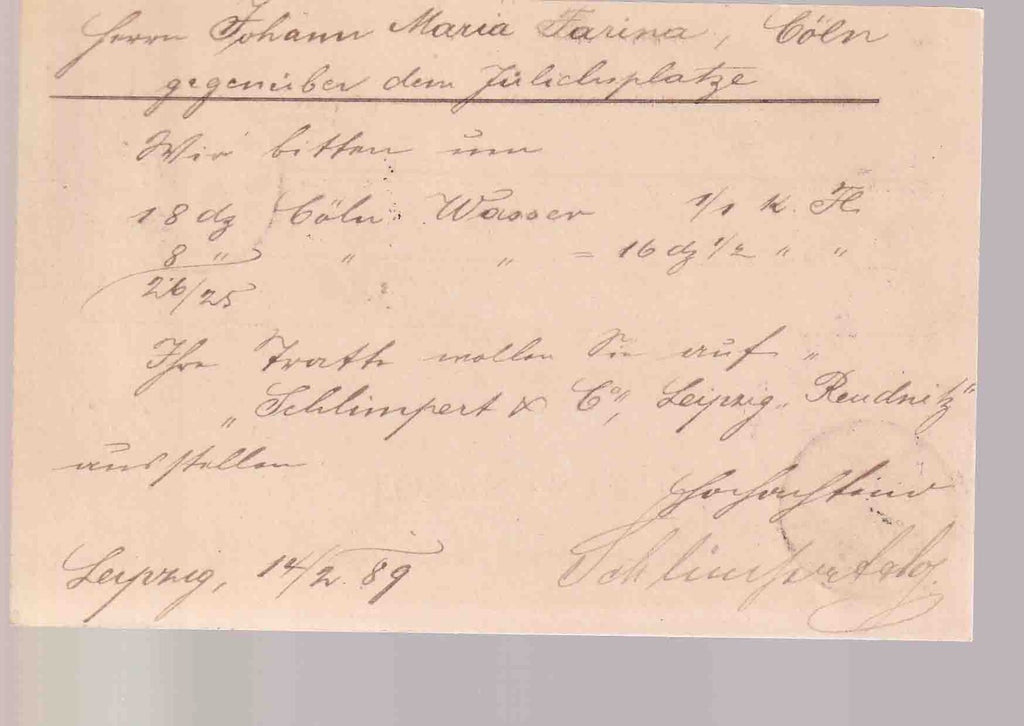 Herrn Johann Maria Farina, Cöln
gegenüber dem Jülichsplatze
Wir bitten um
18 dz Cöln. Wasser 1/1 K. Fl.
8 " " " = 16 dz 1/2 " "
26/25
Ihre Tratte wollen Sie auf "
"Schlimpert & Co", Leipzig-Reudnitz"
ausstellen
Hochachtend
Leipzig, 14/2. 89 Schlimpert & Co.